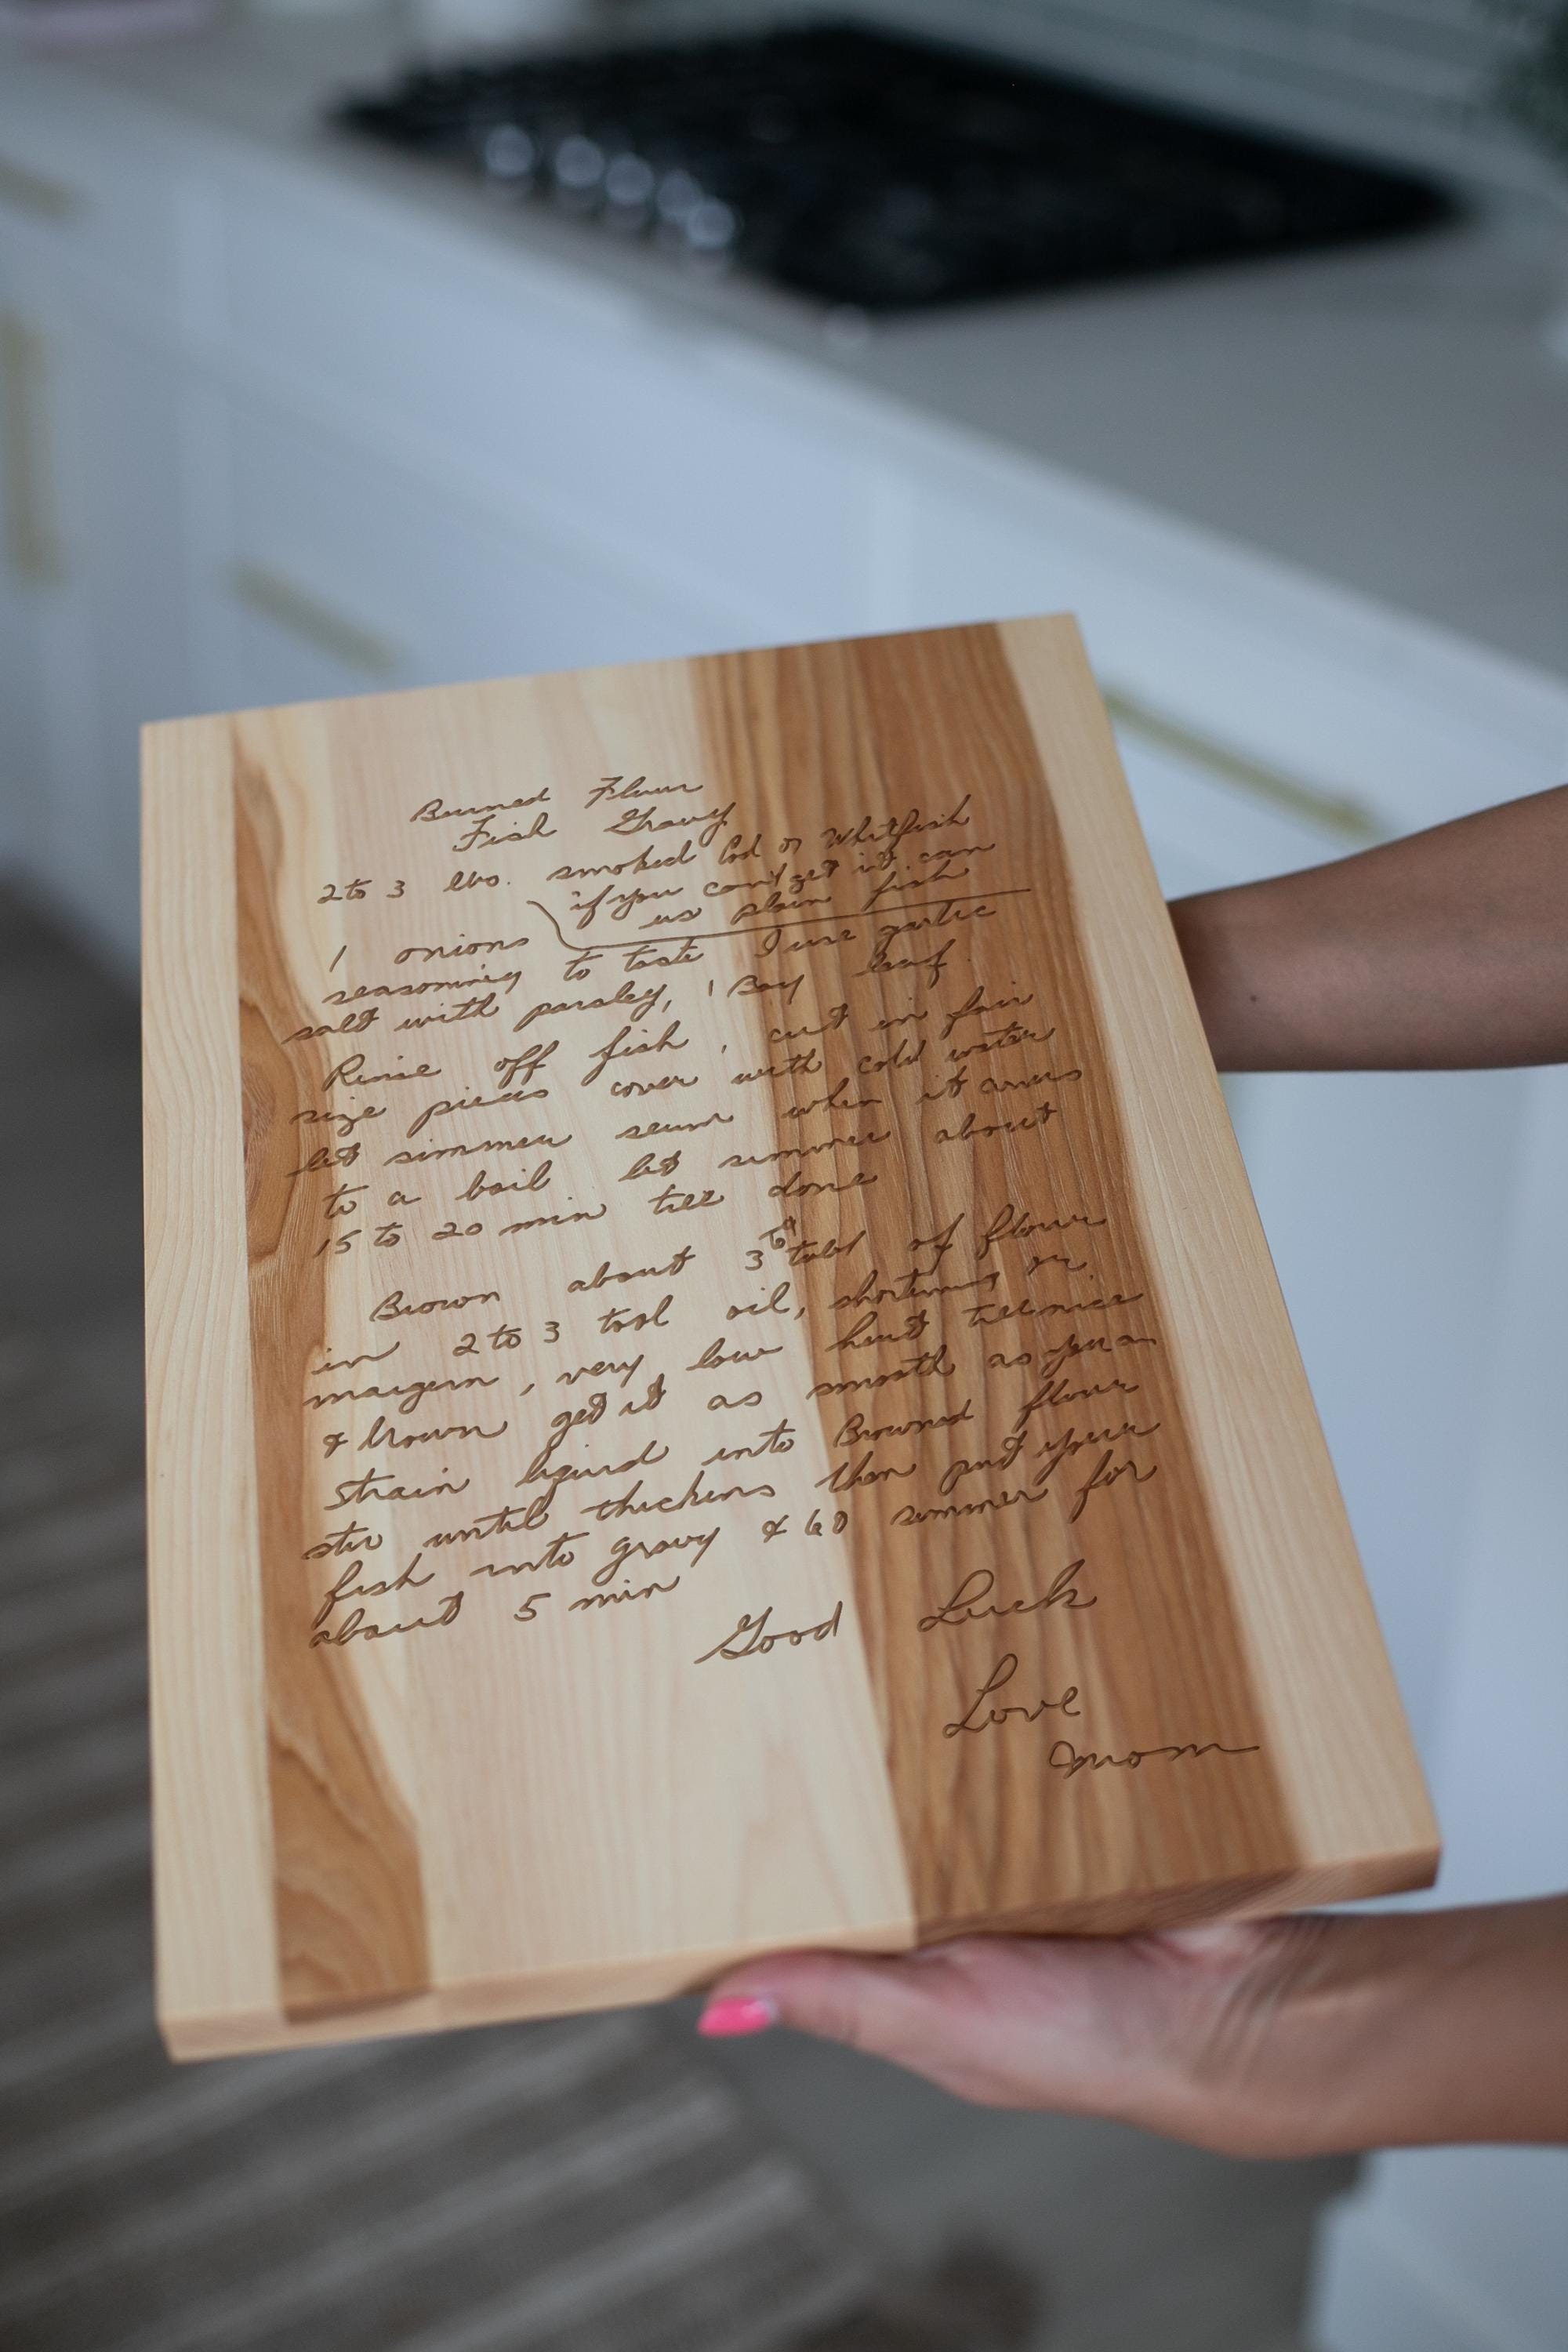 Burned Flour
Fish Gravy
2 to 3 lbs. smoked Cod or Whitfish
if you cant get it can
us plain fish
1 onions
seasoning to taste I use garlic
salt with parsley, 1 Bay leaf.
Rinse off fish, cut in fair
size pieces cover with cold water
let simmer when it comes
to a boil let simmer about
15 to 20 min till done
Brown about 3 to 4 tabl of flour
in 2 to 3 tabl oil, shortening or
margern, very low heat till nice
& brown get it as smooth as you can
strain liquid into Browned flour
stir until thickens then put your
fish into gravy & simmer for
about 5 min
Good Luck
Love
Mom